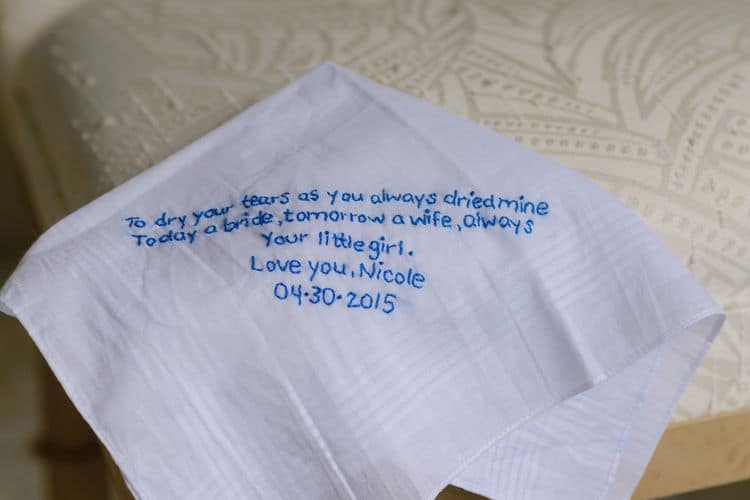 To dry your tears as you always dried mine
Today a bride, tomorrow a wife, always
Your little girl.
Love you, Nicole
04·30·2015